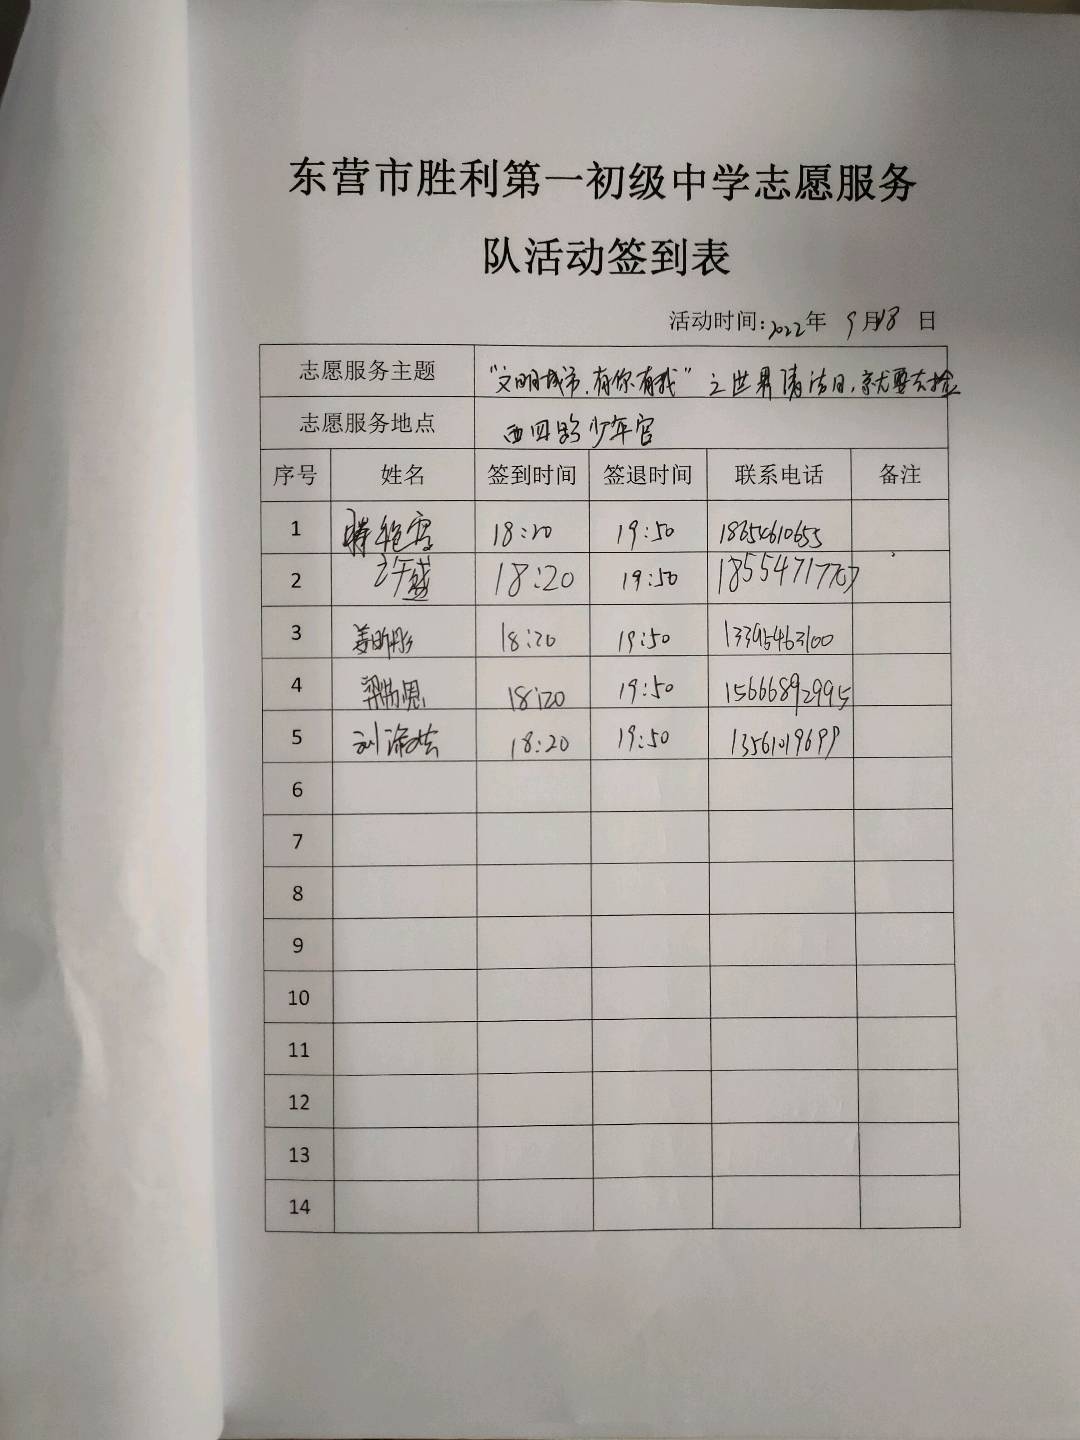 东营市胜利第一初级中学志愿服务
队活动签到表
活动时间:2022年 9月18日
志愿服务主题 "文明城市,有你有我"之世界清洁日,就要去捡
志愿服务地点 西四路少年宫
序号 姓名 签到时间 签退时间 联系电话 备注
1 18:20 19:50 18654610655
2 许盛 18:20 19:50
3 姜昕彤 18:20 19:50 13395463100
4 18:20 19:50 15666892995
5 刘 18:20 19:50 13561019699
6
7
8
9
10
11
12
13
14